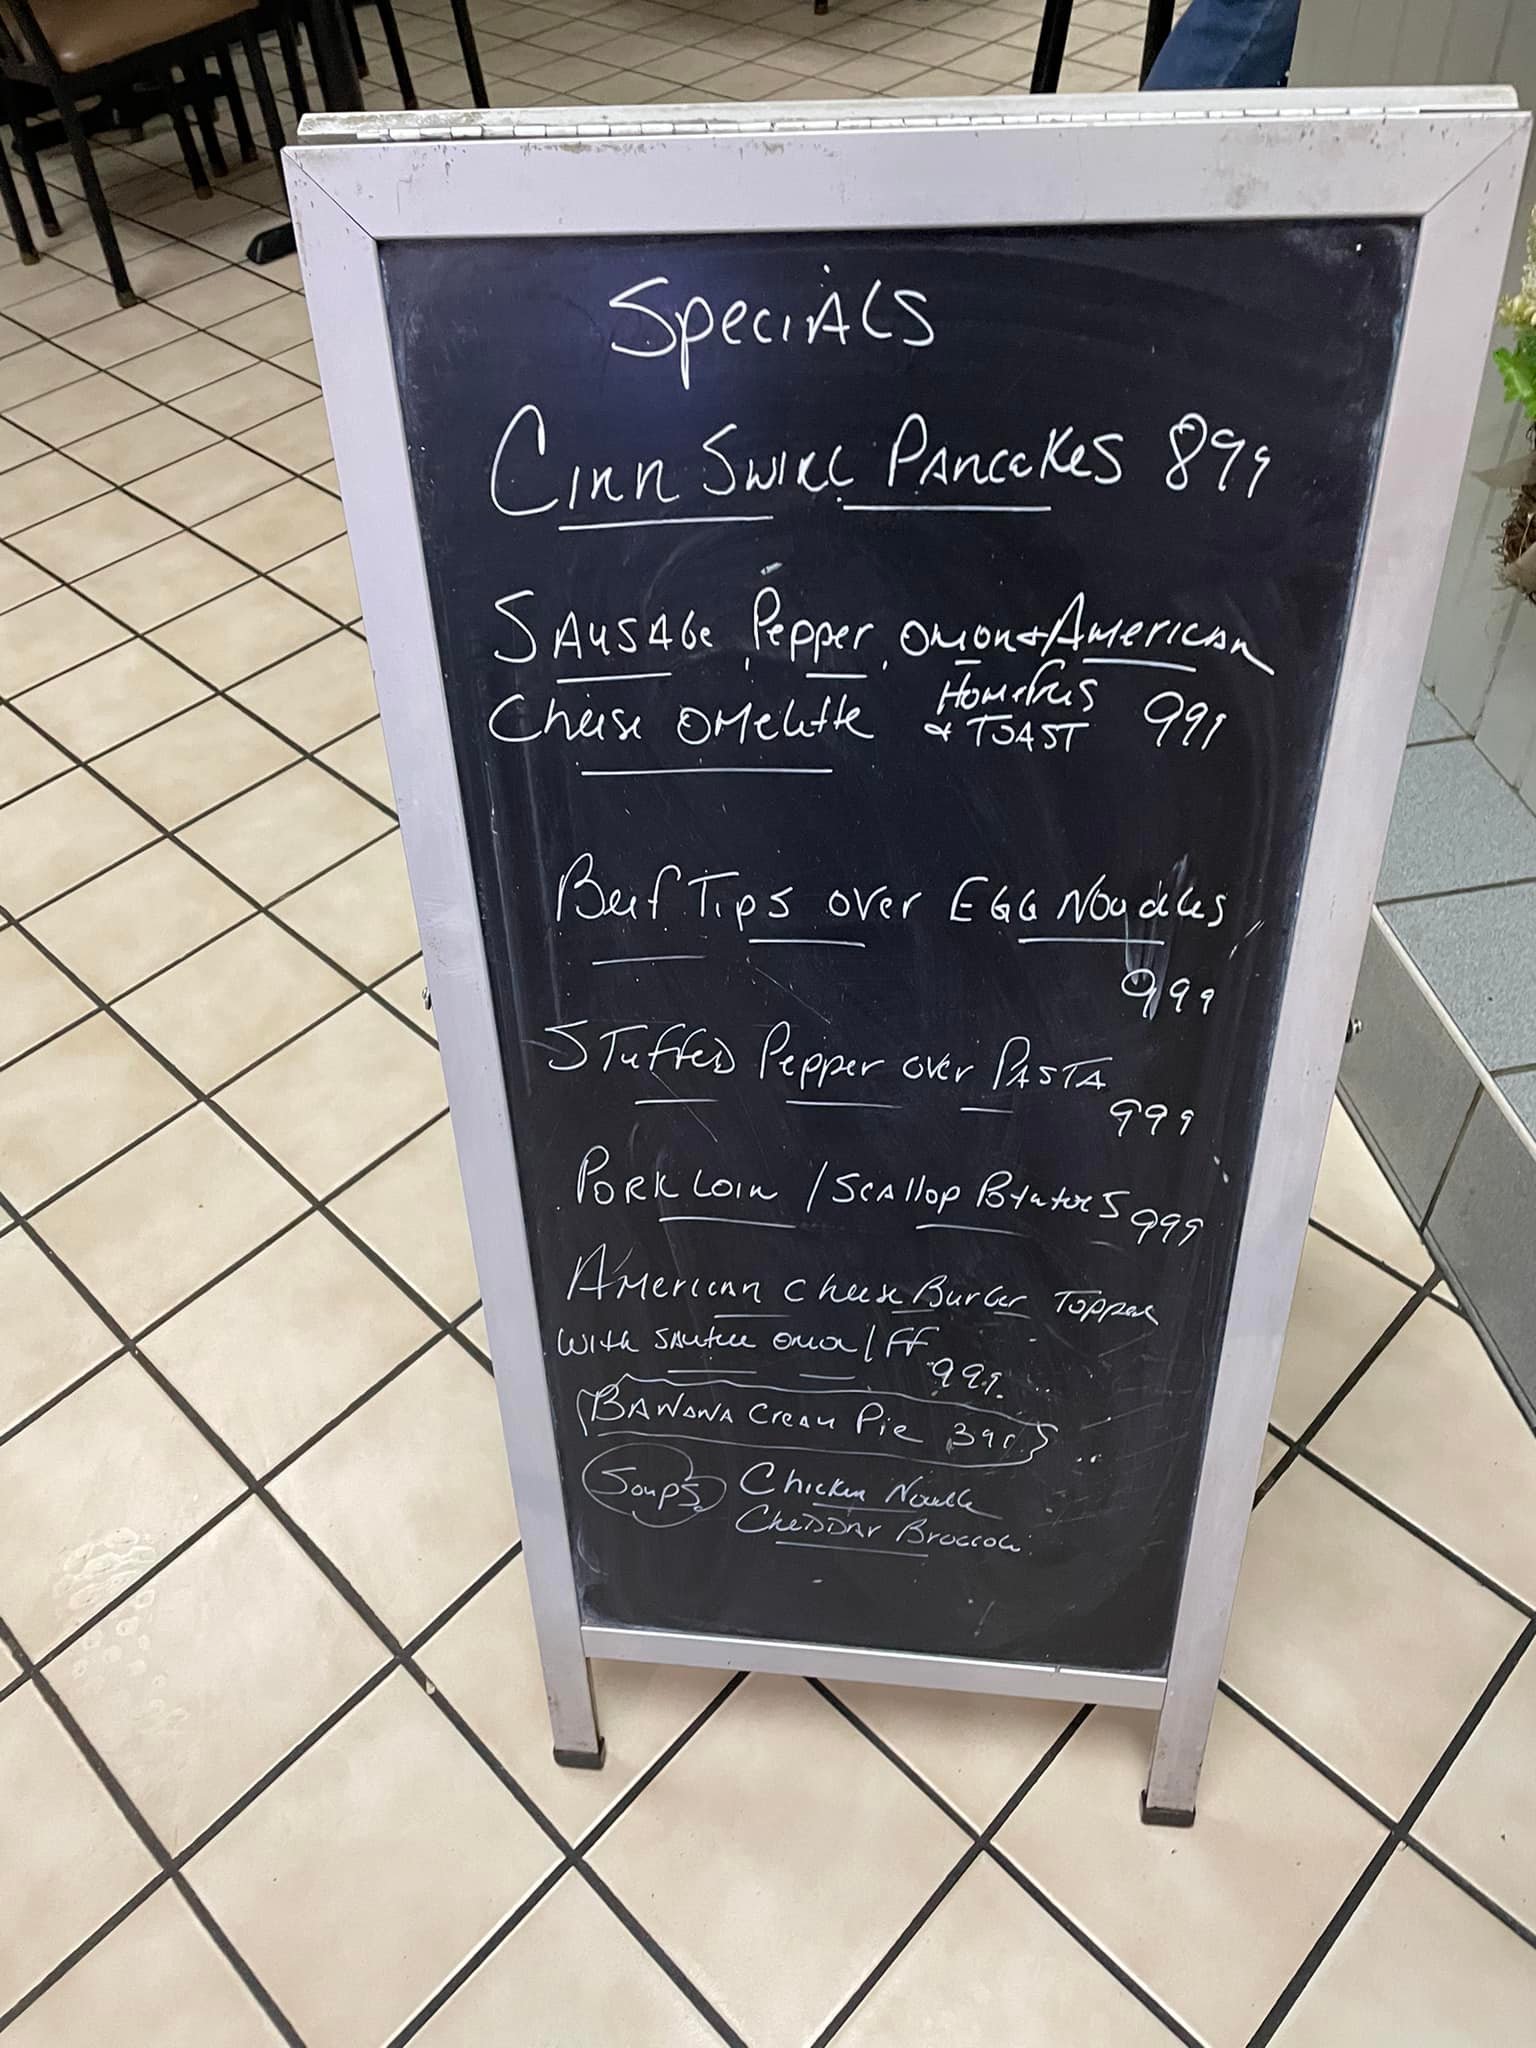 Specials
Cinn Swirl Pancakes 899
Sausage, Pepper, Onion & American
Cheese Omelette Homefries & Toast 999
Beef Tips over Egg Noodles
999
Stuffed Pepper over Pasta
999
Pork Loin / Scallop Potatoes 999
American Cheese Burger Topped
with sautee onion / FF
999
Banana Cream Pie 399
Soups Chicken Noodle
Cheddar Broccoli